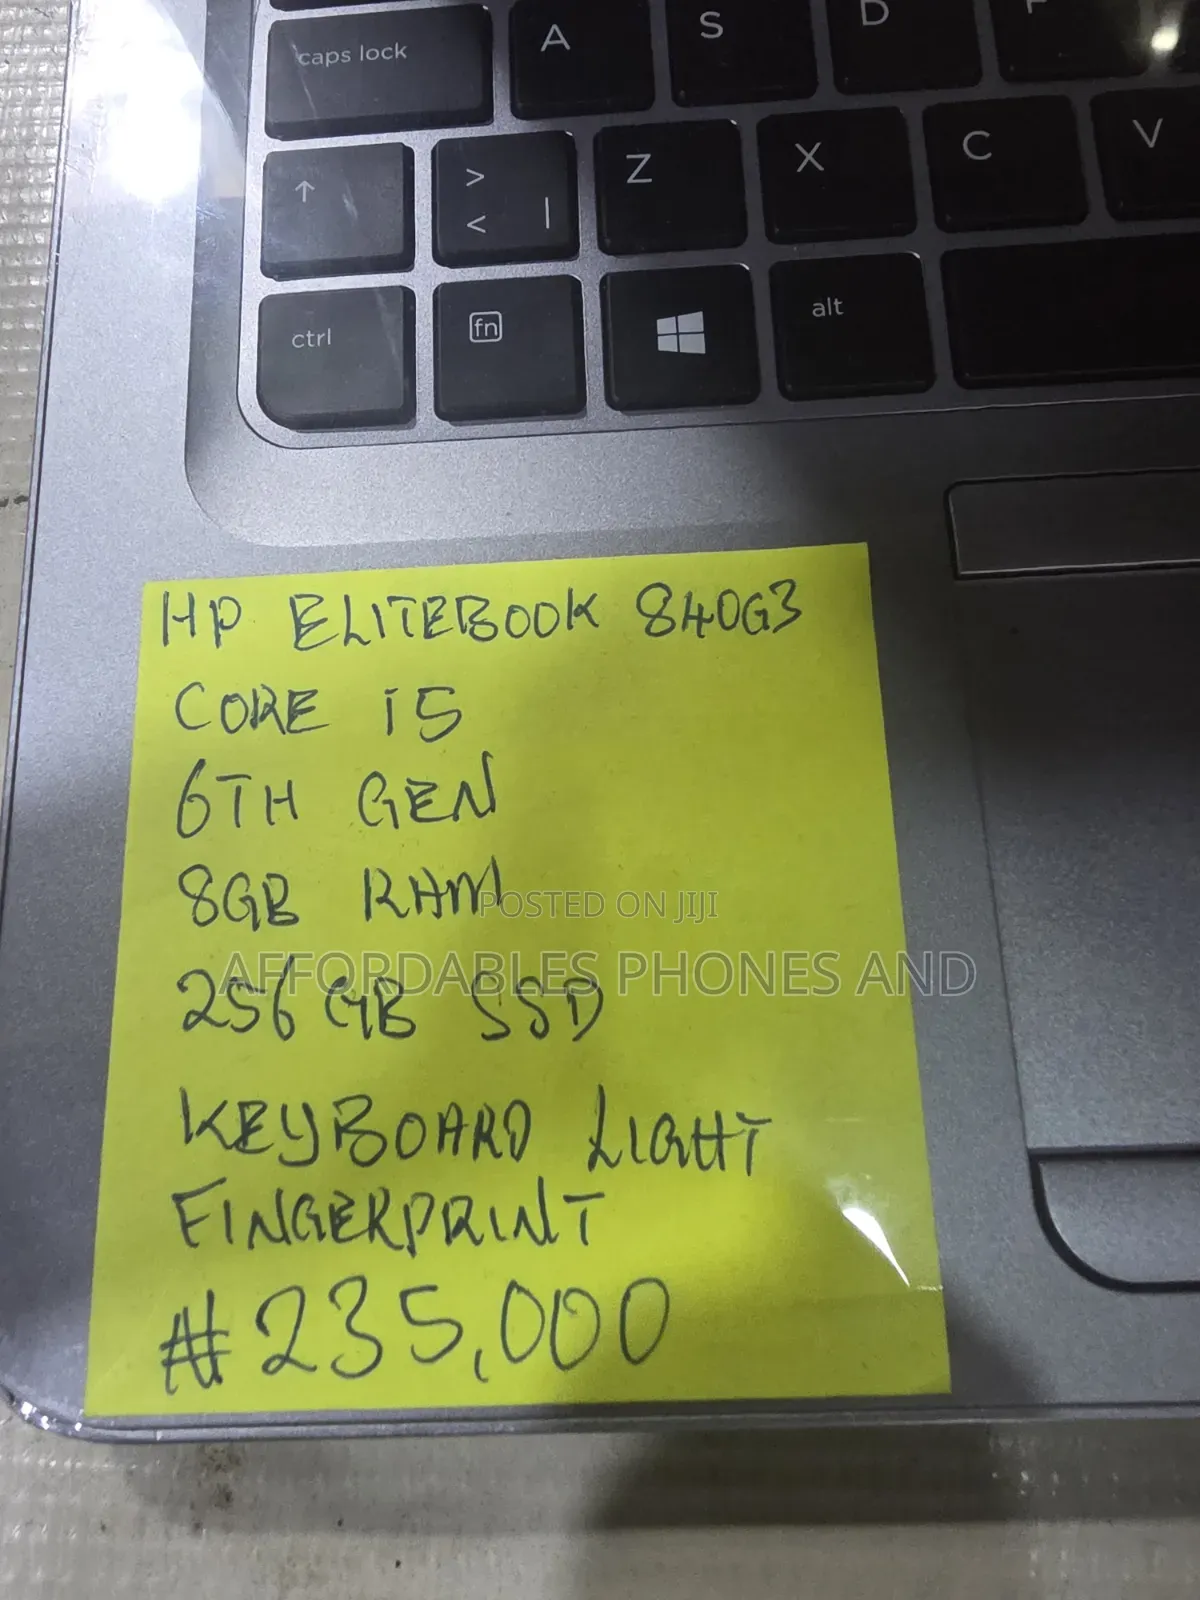 caps lock A S D
↑ > < | Z X C V
ctrl fn alt
HP ELITEBOOK 840G3
CORE i5
6TH GEN
8GB RAM
POSTED ON JIJI
AFFORDABLES PHONES AND
256GB SSD
KEYBOARD LIGHT
FINGERPRINT
₦235,000